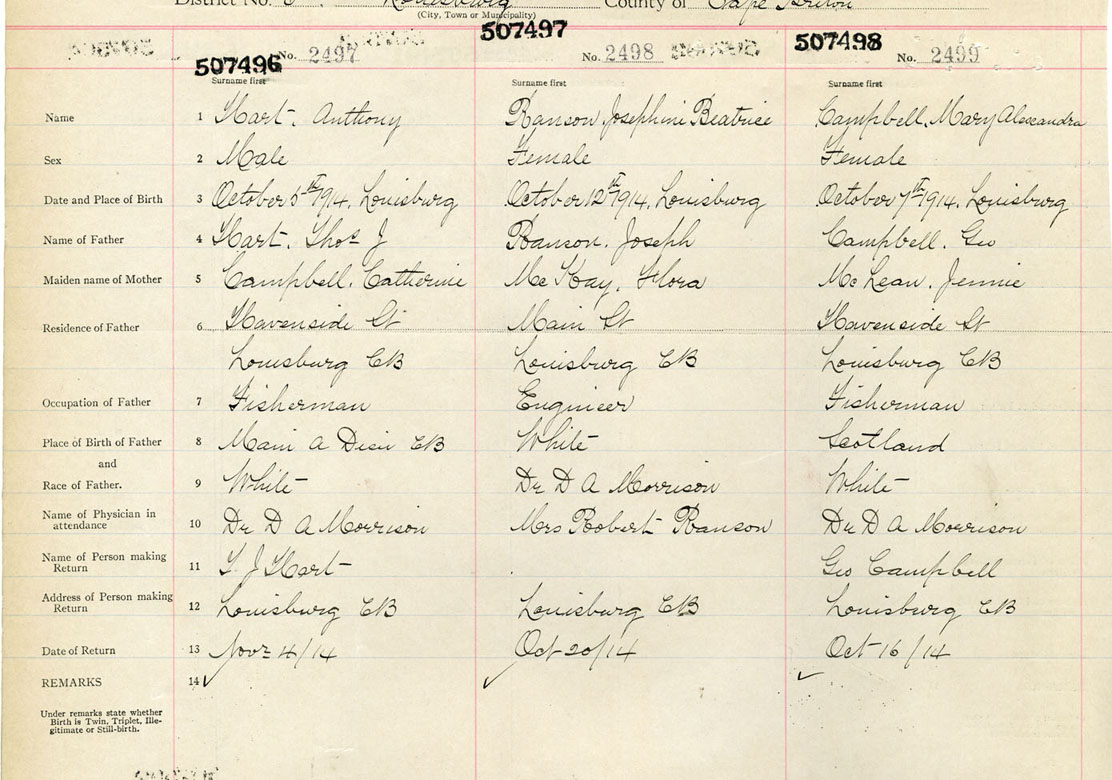 District No. Louisburg County of Cape Breton
(City, Town or Municipality)
507496 No. 2497 507497 No. 2498 507498 No. 2499
Surname first Surname first Surname first
Name 1 Hart. Anthony Ranson Josephine Beatrice Campbell. Mary Alexandra
Sex 2 Male Female Female
Date and Place of Birth 3 October 5th 1914. Louisburg October 12th 1914. Louisburg October 7th 1914. Louisburg
Name of Father 4 Hart. Thos J Ranson. Joseph Campbell. Geo
Maiden name of Mother 5 Campbell. Catherine McKay, Flora McLean. Jennie
Residence of Father 6 Havenside St Main St Havenside St
Louisburg CB Louisburg CB Louisburg CB
Occupation of Father 7 Fisherman Engineer Fisherman
Place of Birth of Father 8 Main A Dieu CB White Scotland
and
Race of Father. 9 White Dr D A Morrison White
Name of Physician in
attendance 10 Dr D A Morrison Mrs Robert Ranson Dr D A Morrison
Name of Person making
Return 11 T. J Hart Geo Campbell
Address of Person making
Return 12 Louisburg CB Louisburg CB Louisburg CB
Date of Return 13 Novr 4/14 Oct 20/14 Oct 16/14
REMARKS 14
Under remarks state whether
Birth is Twin, Triplet, Ille-
gitimate or Still-birth.